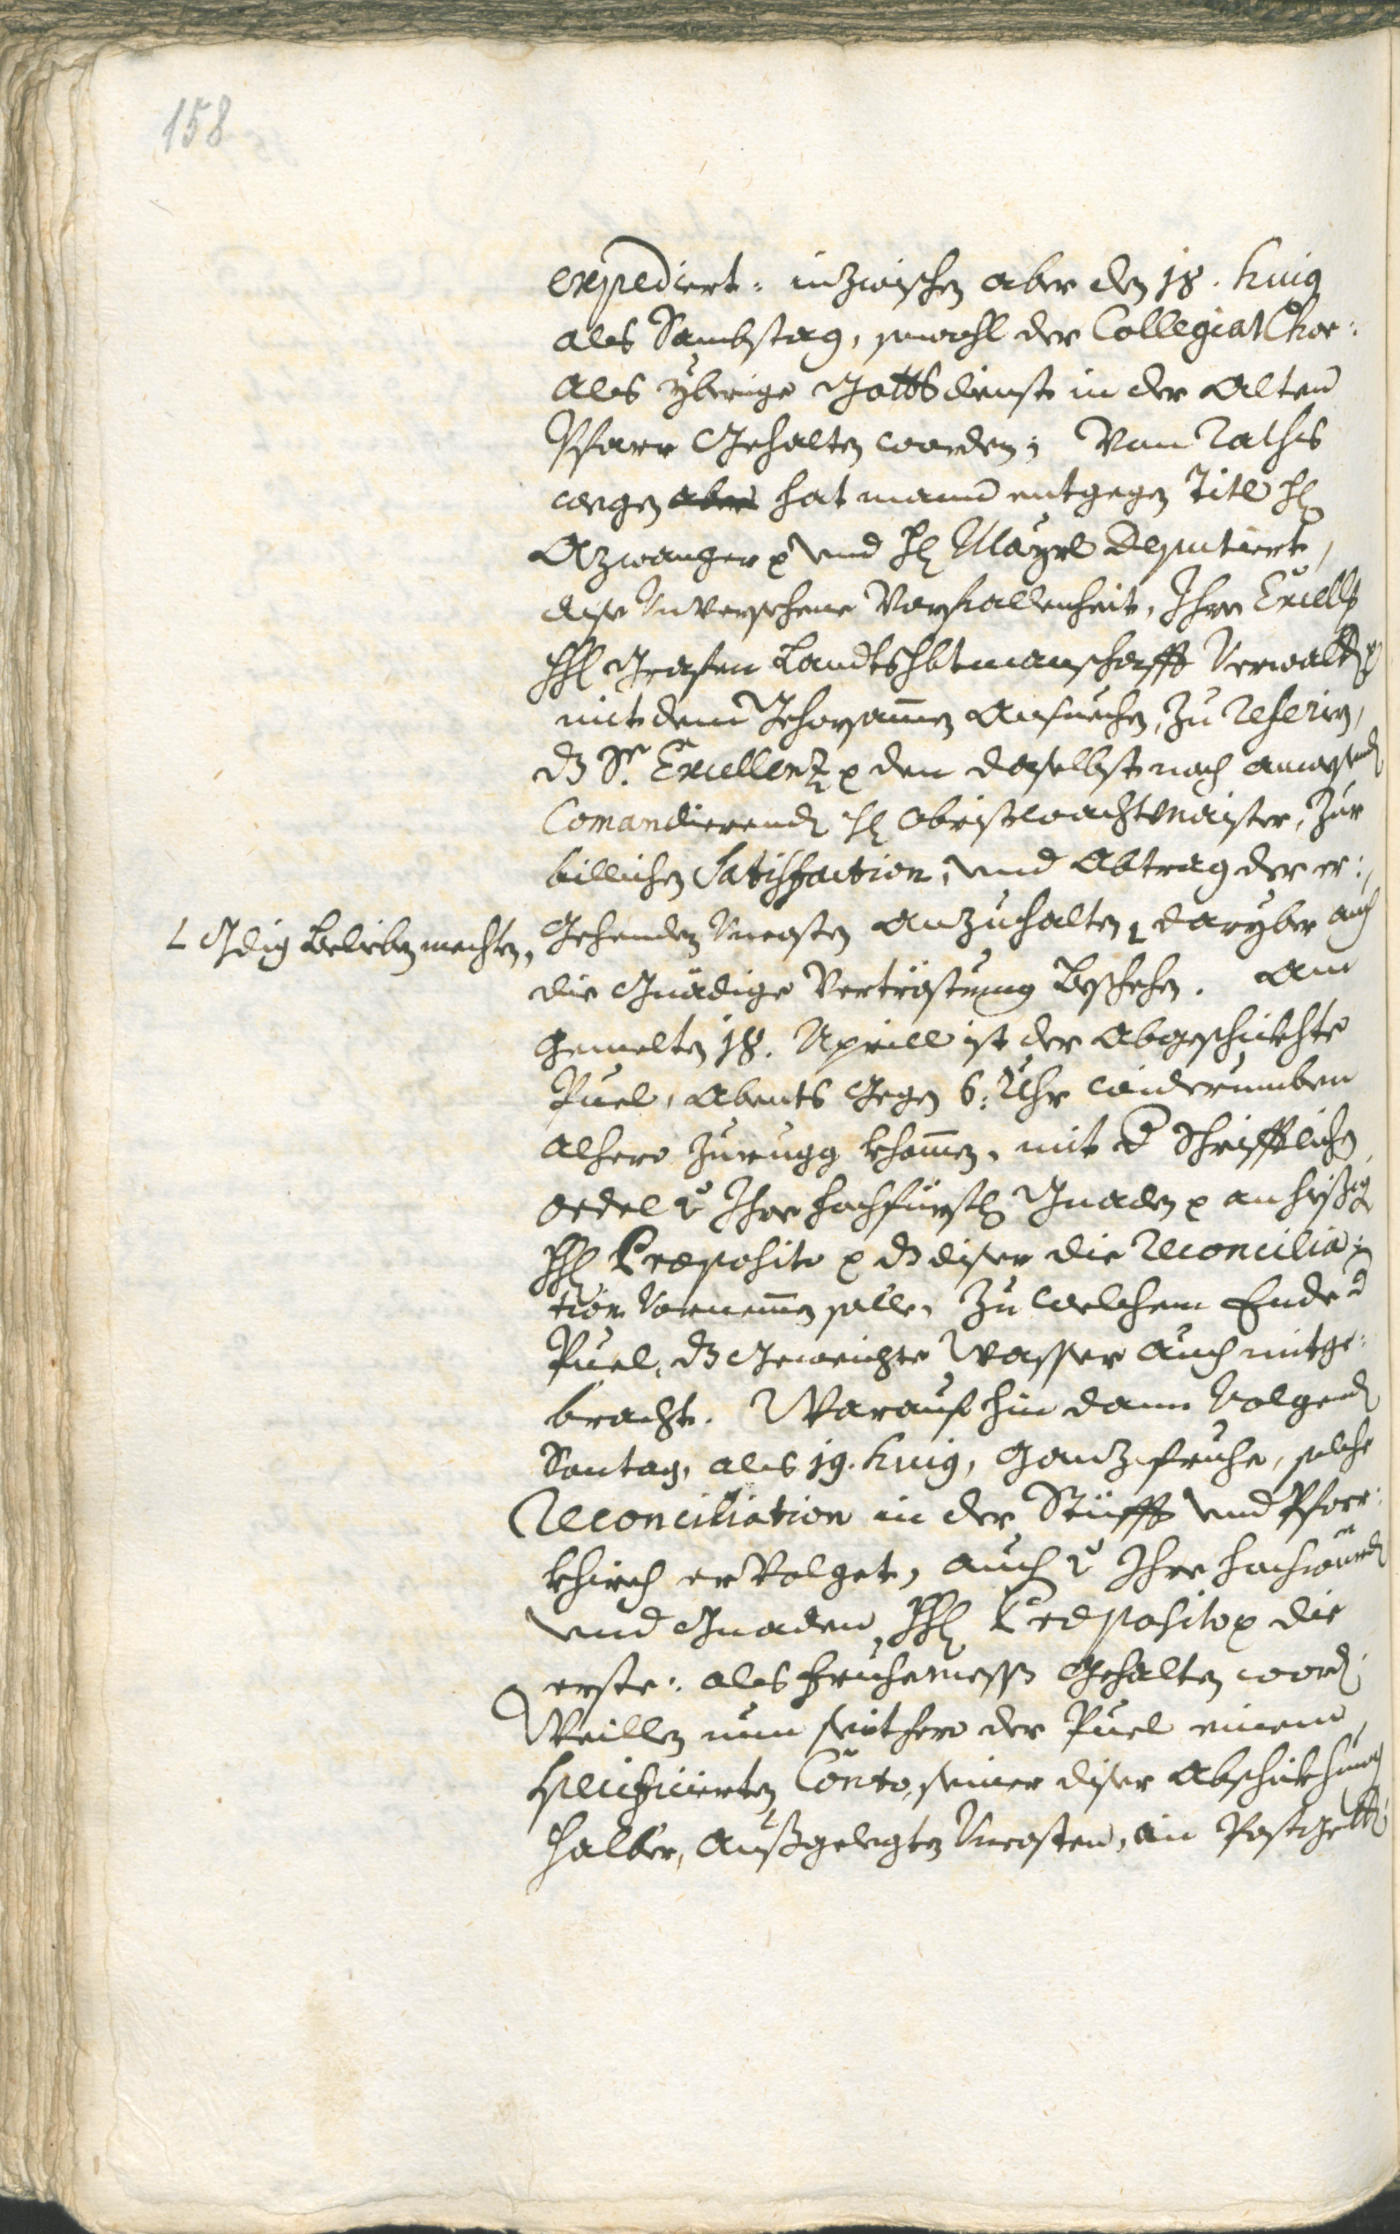 158
expediert. inzwischen aber den 18. huig
als Sambstag, sowohl der Collegiat Chor:
als ybrige Gottsdienst in der Alten
Pfarr Gehalten worden; Von Raths
wegen aber hat mann entgegen Titl H
Azwanger p und H Mayrl Deputiert,
dise Unversehene Vorfallenheit, Ihr Excell
HH Grafen Landtshbtmanschafft Verwaltr
mit dem Gehorsammen Ansuechen, zu referirn,
dz Sr. Excellenz p den daselbst noch anwesend
Comandierend H Obristwachtmaister, zur
billichen Satisfaction, und Abtrag der er:
Gehenden Uncosten anzuhalten ⌊ daryber auch
⌊ Gdig belieben mechten,
die Gnädige Vertröstung beschehen. Am
gemelten 18. Aprill ist der Abgeschickhte
Puel, Abents Gegen 6: Uhr widerumben
alhero zurugg khommen, mit d Schrifftlichen
Ihr hochfürstl Gnaden p an hießig
HH Præposito p dz diser die reconcilia:
tion Vornemmen solle, zu welchem Ende d
Puel, dz Geweichte Wasser auch mitge:
bracht. Warauf hin dann Volgend
Sontag, als 19. huig, Ganz fruhe, solche
Reconciliation in der Stüfft und Pfarr:
khirch erVolget, auch Ihr hochwürd
und Gnaden HH Præposito p die
erste: als fruhemess Gehalten word.
Weillen nun seithero der Puel einem
specificierten Conto, seiner diser Abschickhung
halber, Außgelegten Uncosten, an Postgelt